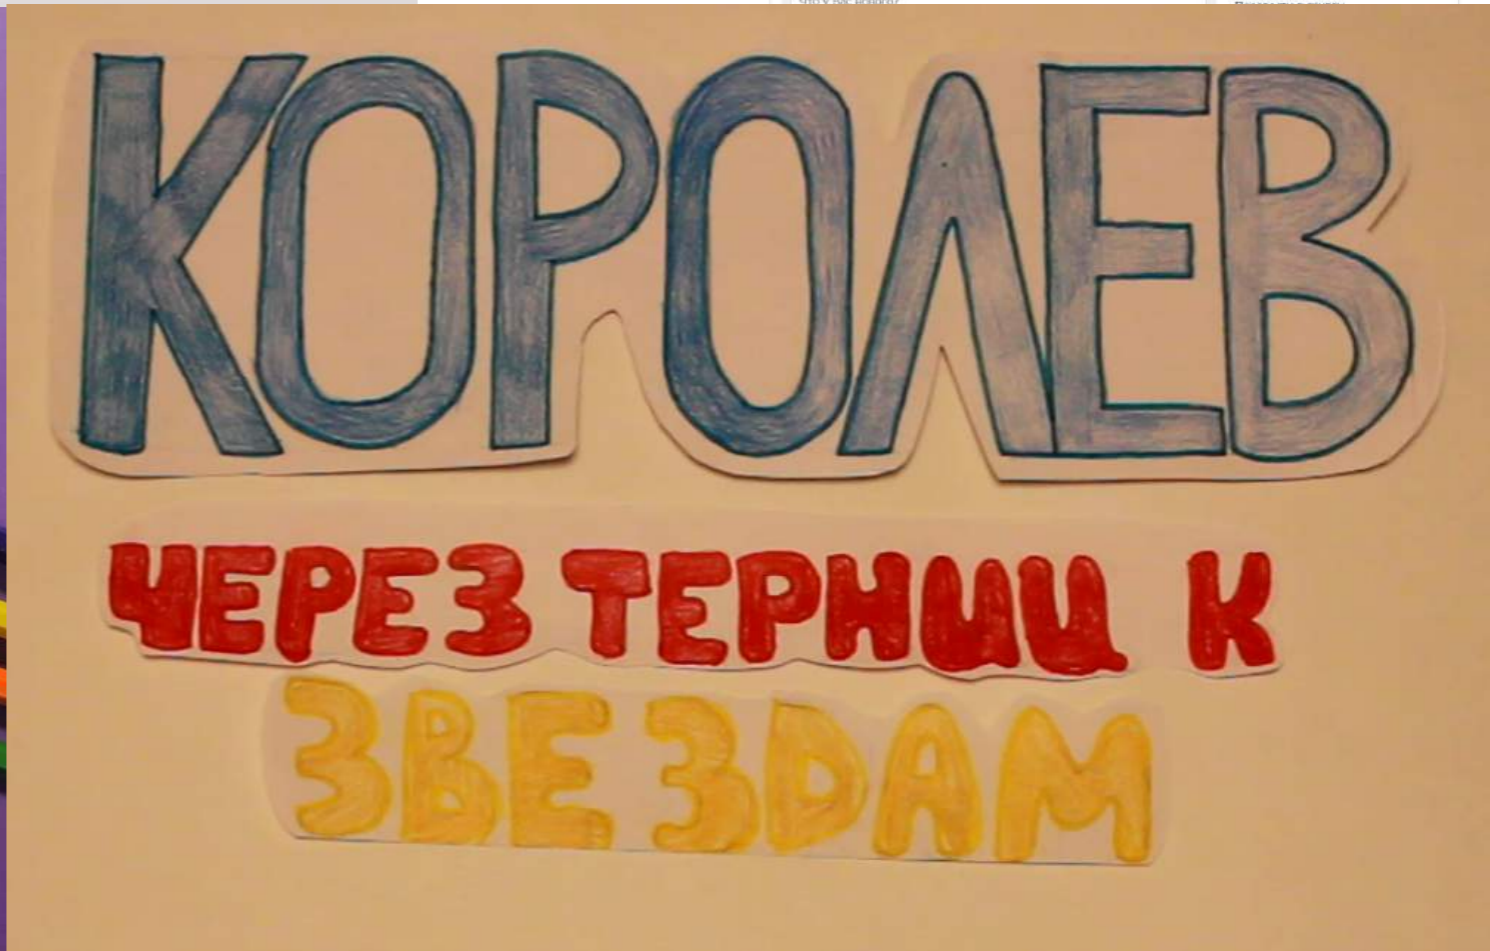 КОРОЛЕВ
ЧЕРЕЗ ТЕРНИИ К
ЗВЕЗДАМ